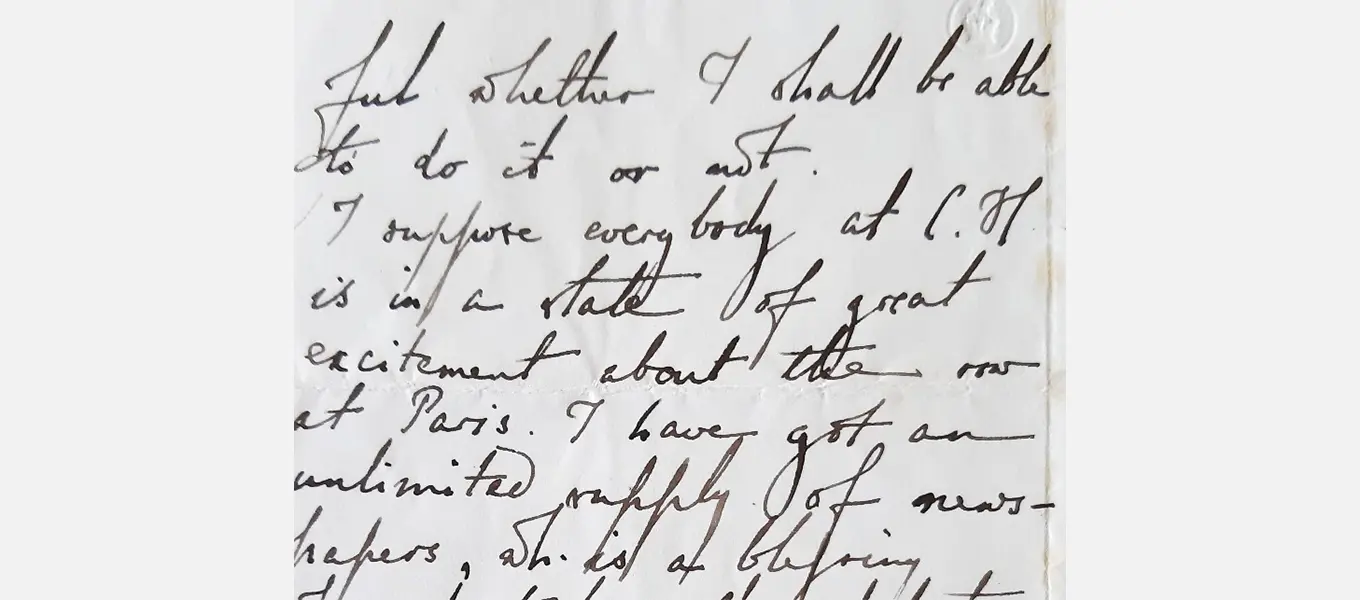 ful whether I shall be able
to do it or not.
I suppose everybody at C.H
is in a state of great
excitement about the row
at Paris. I have got an
unlimited supply of news-
papers, wh. is a blessing